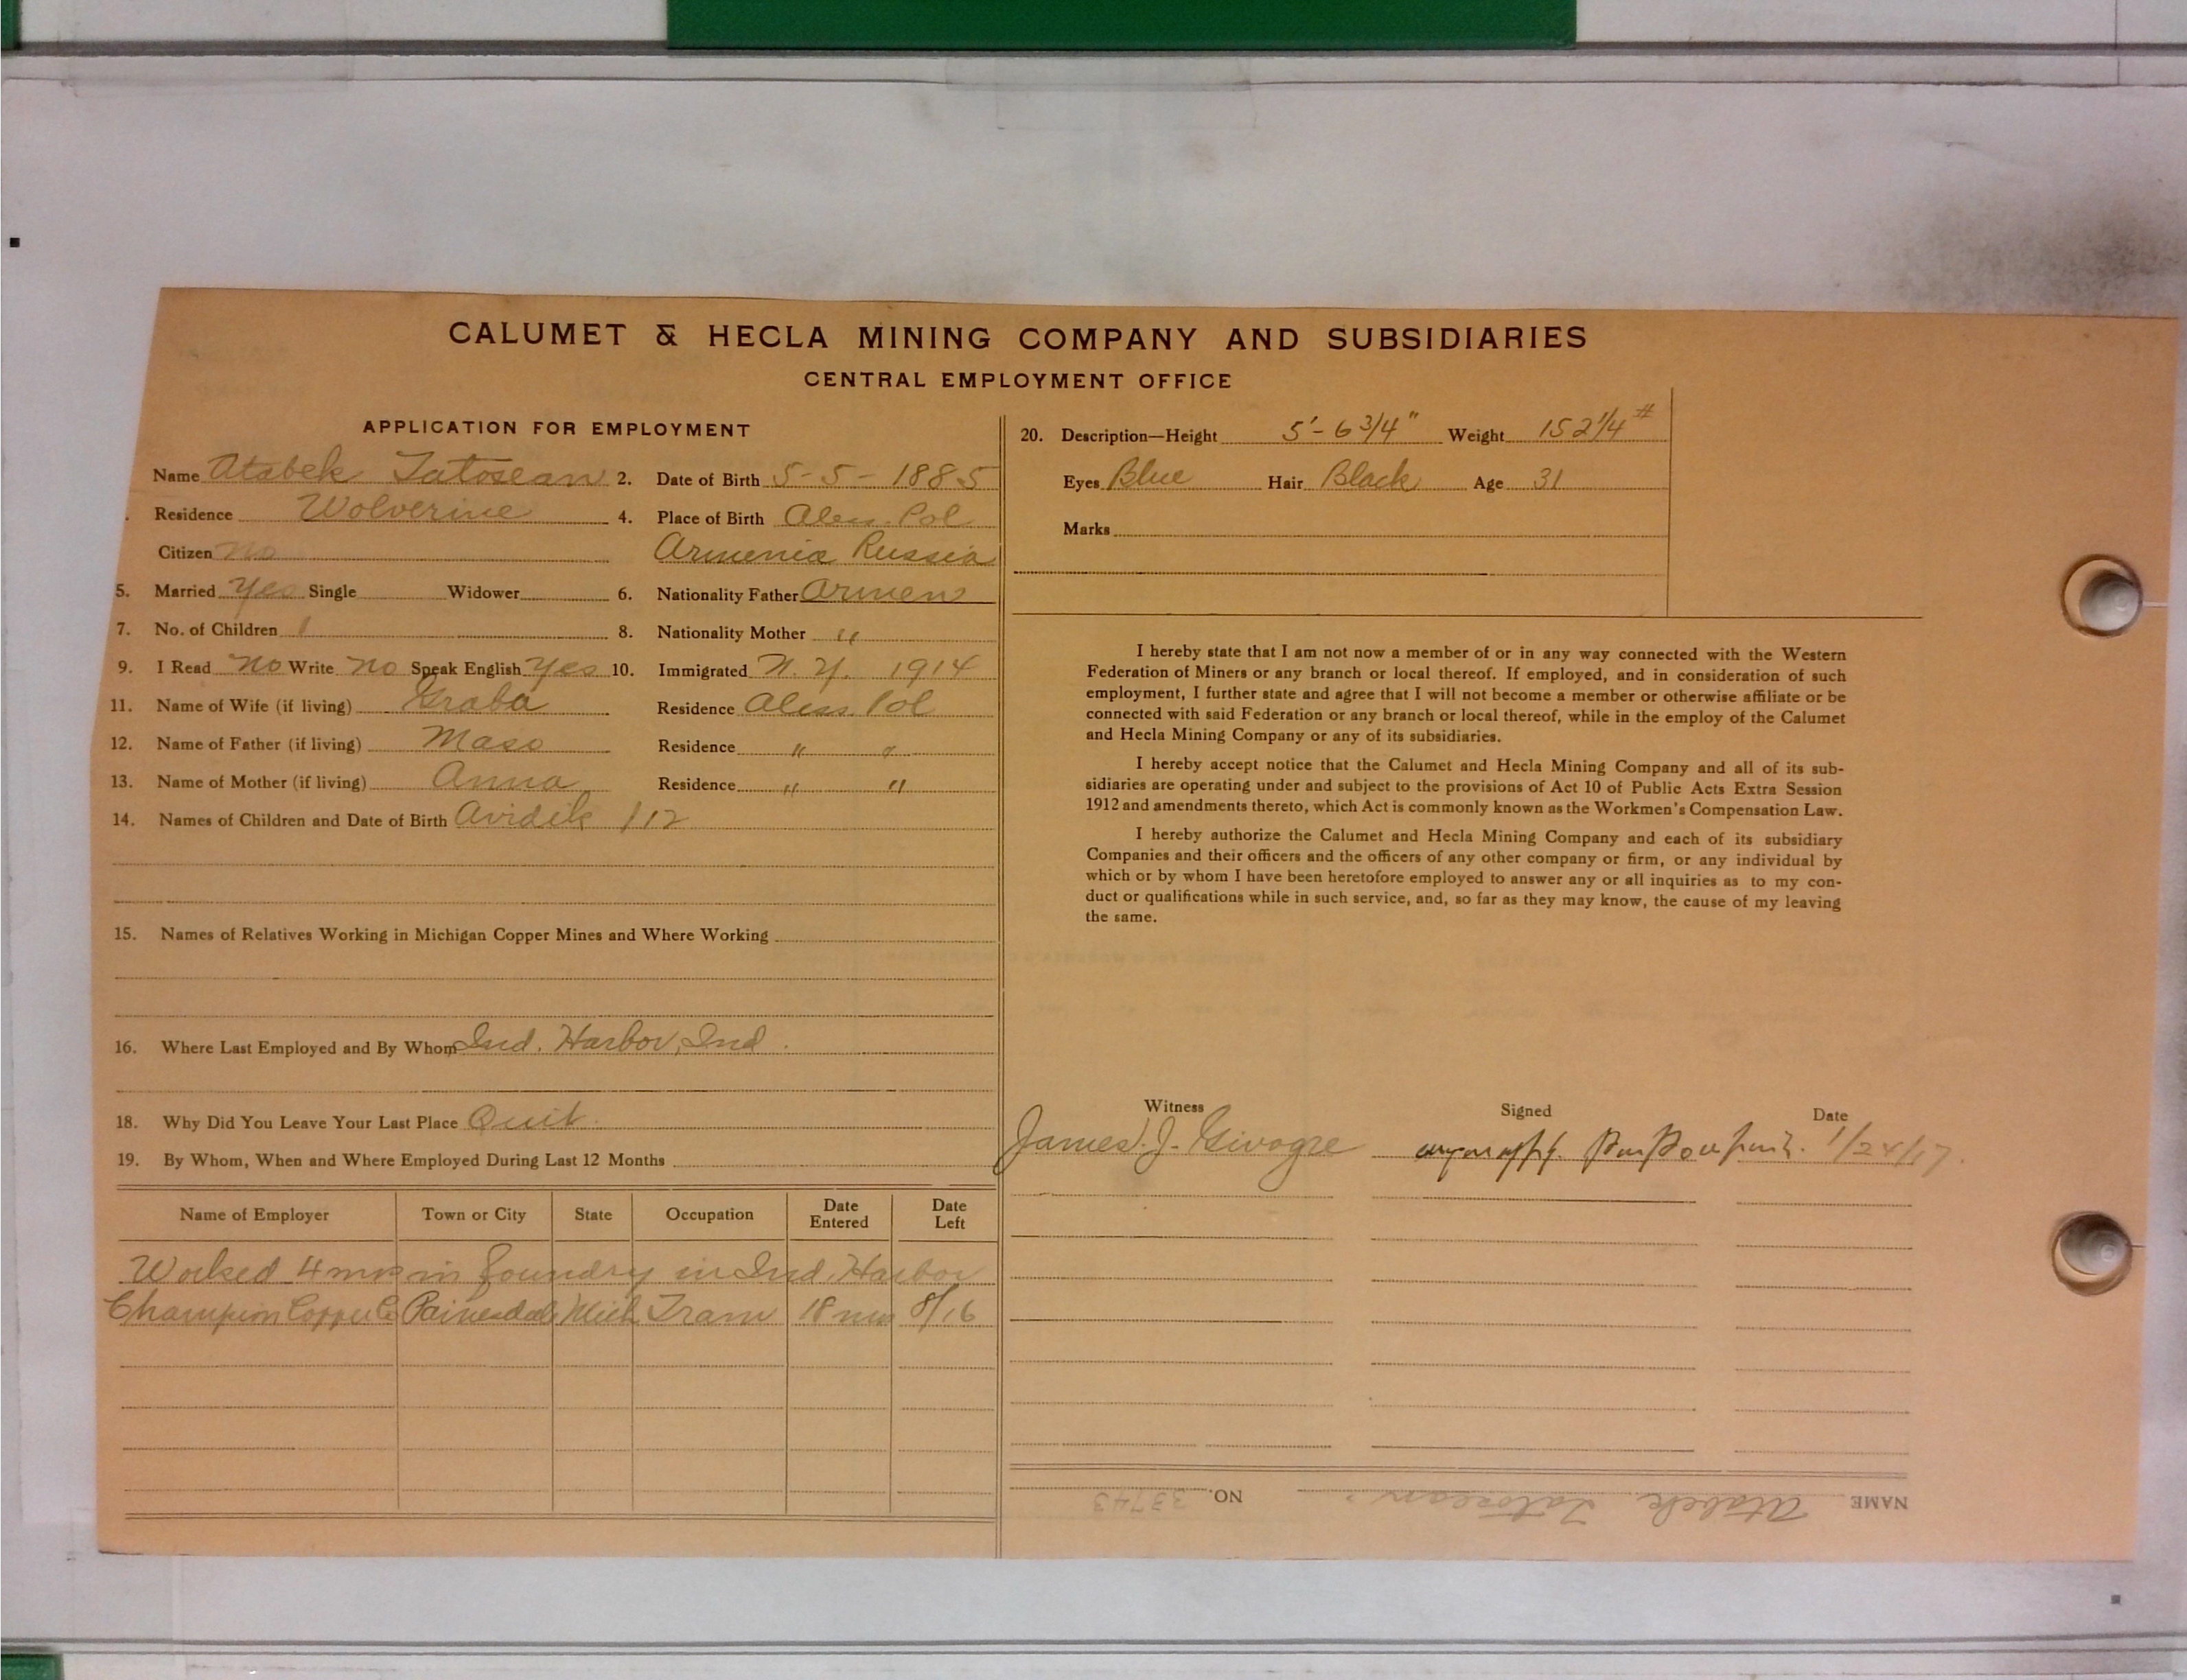 CALUMET & HECLA MINING COMPANY AND SUBSIDIARIES
CENTRAL EMPLOYMENT OFFICE
APPLICATION FOR EMPLOYMENT
Name Atabek Tatosean 2. Date of Birth 5-5-1885
Residence Wolverine 4. Place of Birth Aless. Pol
Citizen No Armenia Russia
5. Married Yes Single Widower 6. Nationality Father Armen
7. No. of Children 1 8. Nationality Mother "
9. I Read No Write No Speak English Yes 10. Immigrated N.Y. 1914
11. Name of Wife (if living) Graba Residence Aless. Pol
12. Name of Father (if living) Maso Residence " "
13. Name of Mother (if living) Anna Residence " "
14. Names of Children and Date of Birth Avidik /12
15. Names of Relatives Working in Michigan Copper Mines and Where Working
16. Where Last Employed and By Whom Ind. Harbor, Ind.
18. Why Did You Leave Your Last Place Quit.
19. By Whom, When and Where Employed During Last 12 Months
Name of Employer Town or City State Occupation Date Entered Date Left
Worked 4 mos in foundry in Ind. Harbor
Champion Copper Co Painesdale Mich Tram 18 mos 8/16
20. Description—Height 5'-6 3/4" Weight 152 1/4 #
Eyes Blue Hair Black Age 31
Marks
I hereby state that I am not now a member of or in any way connected with the Western
Federation of Miners or any branch or local thereof. If employed, and in consideration of such
employment, I further state and agree that I will not become a member or otherwise affiliate or be
connected with said Federation or any branch or local thereof, while in the employ of the Calumet
and Hecla Mining Company or any of its subsidiaries.
I hereby accept notice that the Calumet and Hecla Mining Company and all of its sub-
sidiaries are operating under and subject to the provisions of Act 10 of Public Acts Extra Session
1912 and amendments thereto, which Act is commonly known as the Workmen's Compensation Law.
I hereby authorize the Calumet and Hecla Mining Company and each of its subsidiary
Companies and their officers and the officers of any other company or firm, or any individual by
which or by whom I have been heretofore employed to answer any or all inquiries as to my con-
duct or qualifications while in such service, and, so far as they may know, the cause of my leaving
the same.
Witness Signed Date
James J. Givogre 1/24/17
NAME Atabek Tatosean NO. 33743